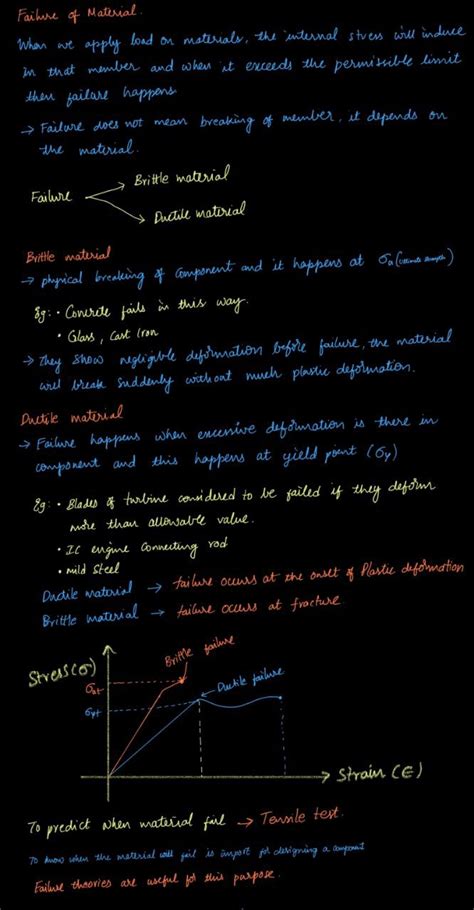 Failure of Material.
When we apply load on materials, the internal stress will induce
in that member and when it exceeds the permissible limit
then failure happens
→ Failure does not mean breaking of member, it depends on
the material.
Failure
→ Brittle material
→ Ductile material
Brittle material
→ physical breaking of component and it happens at σu (ultimate strength)
Eg: • Concrete fails in this way.
• Glass, Cast Iron
→ They show negligible deformation before failure, the material
will break suddenly without much plastic deformation.
Ductile material
→ Failure happens when excessive deformation is there in
component and this happens at yield point (σy)
Eg: • Blades of turbine considered to be failed if they deform
more than allowable value.
• IC engine connecting rod
• mild Steel
Ductile material → failure occurs at the onset of Plastic deformation
Brittle material → failure occurs at fracture.
Brittle failure
Stress (σ)
σut
Ductile failure
σyt
→ Strain (∈)
To predict when material fail → Tensile test.
To know when the material will fail is import for designing a component
Failure theories are useful for this purpose.